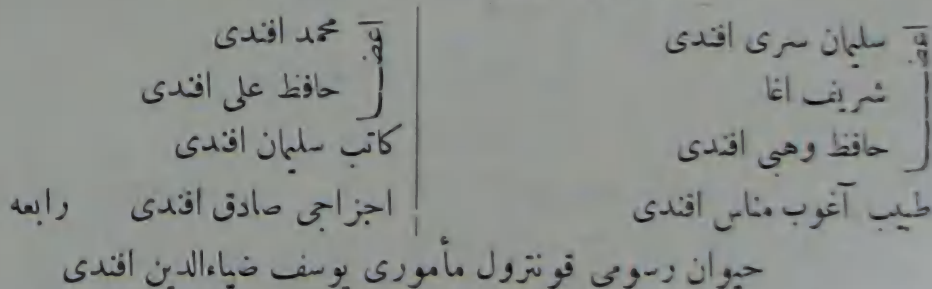 اعضا
سلیمان سری افندی
شریف اغا
حافظ وهبی افندی
طبیب آغوب مناس افندی
اعضا
محمد افندی
حافظ علی افندی
کاتب سلیمان افندی
اجزاجی صادق افندی رابعه
حیوان رسومی قونترول مأموری یوسف ضیاءالدین افندی